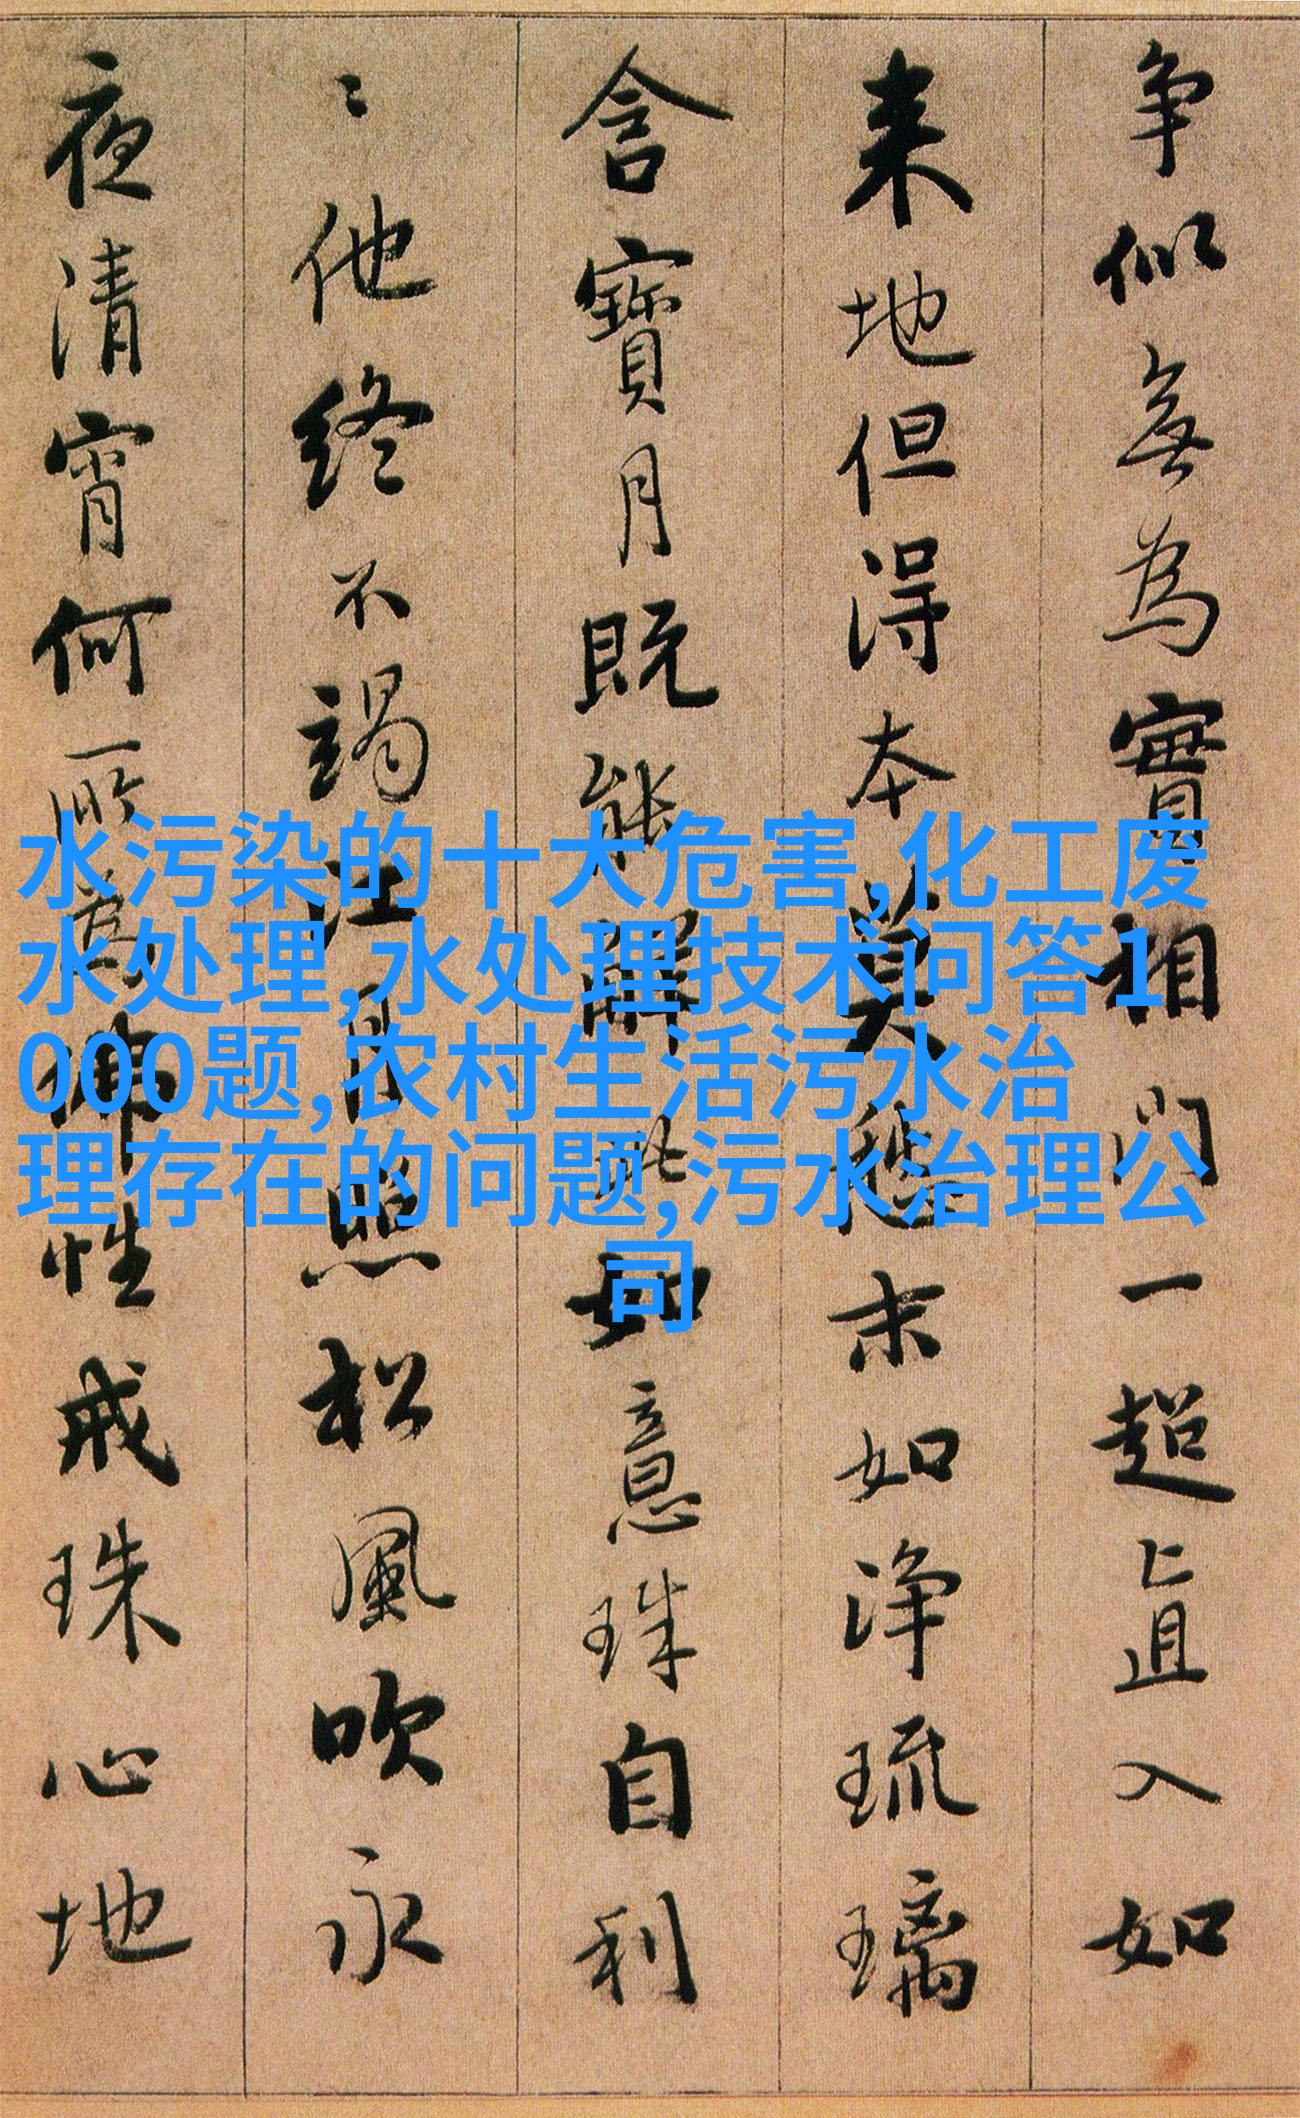 争似無為實相門一超直入如
来地但得本莫愁末如浄琉璃
含寶月既能解此如意珠自利
〻他終不竭江月照松風吹永
夜清宵何所為佛性戒珠心地
水污染的十大危害,化工废
水处理,水处理技术问答1
000题,农村生活污水治
理存在的问题,污水治理公
司